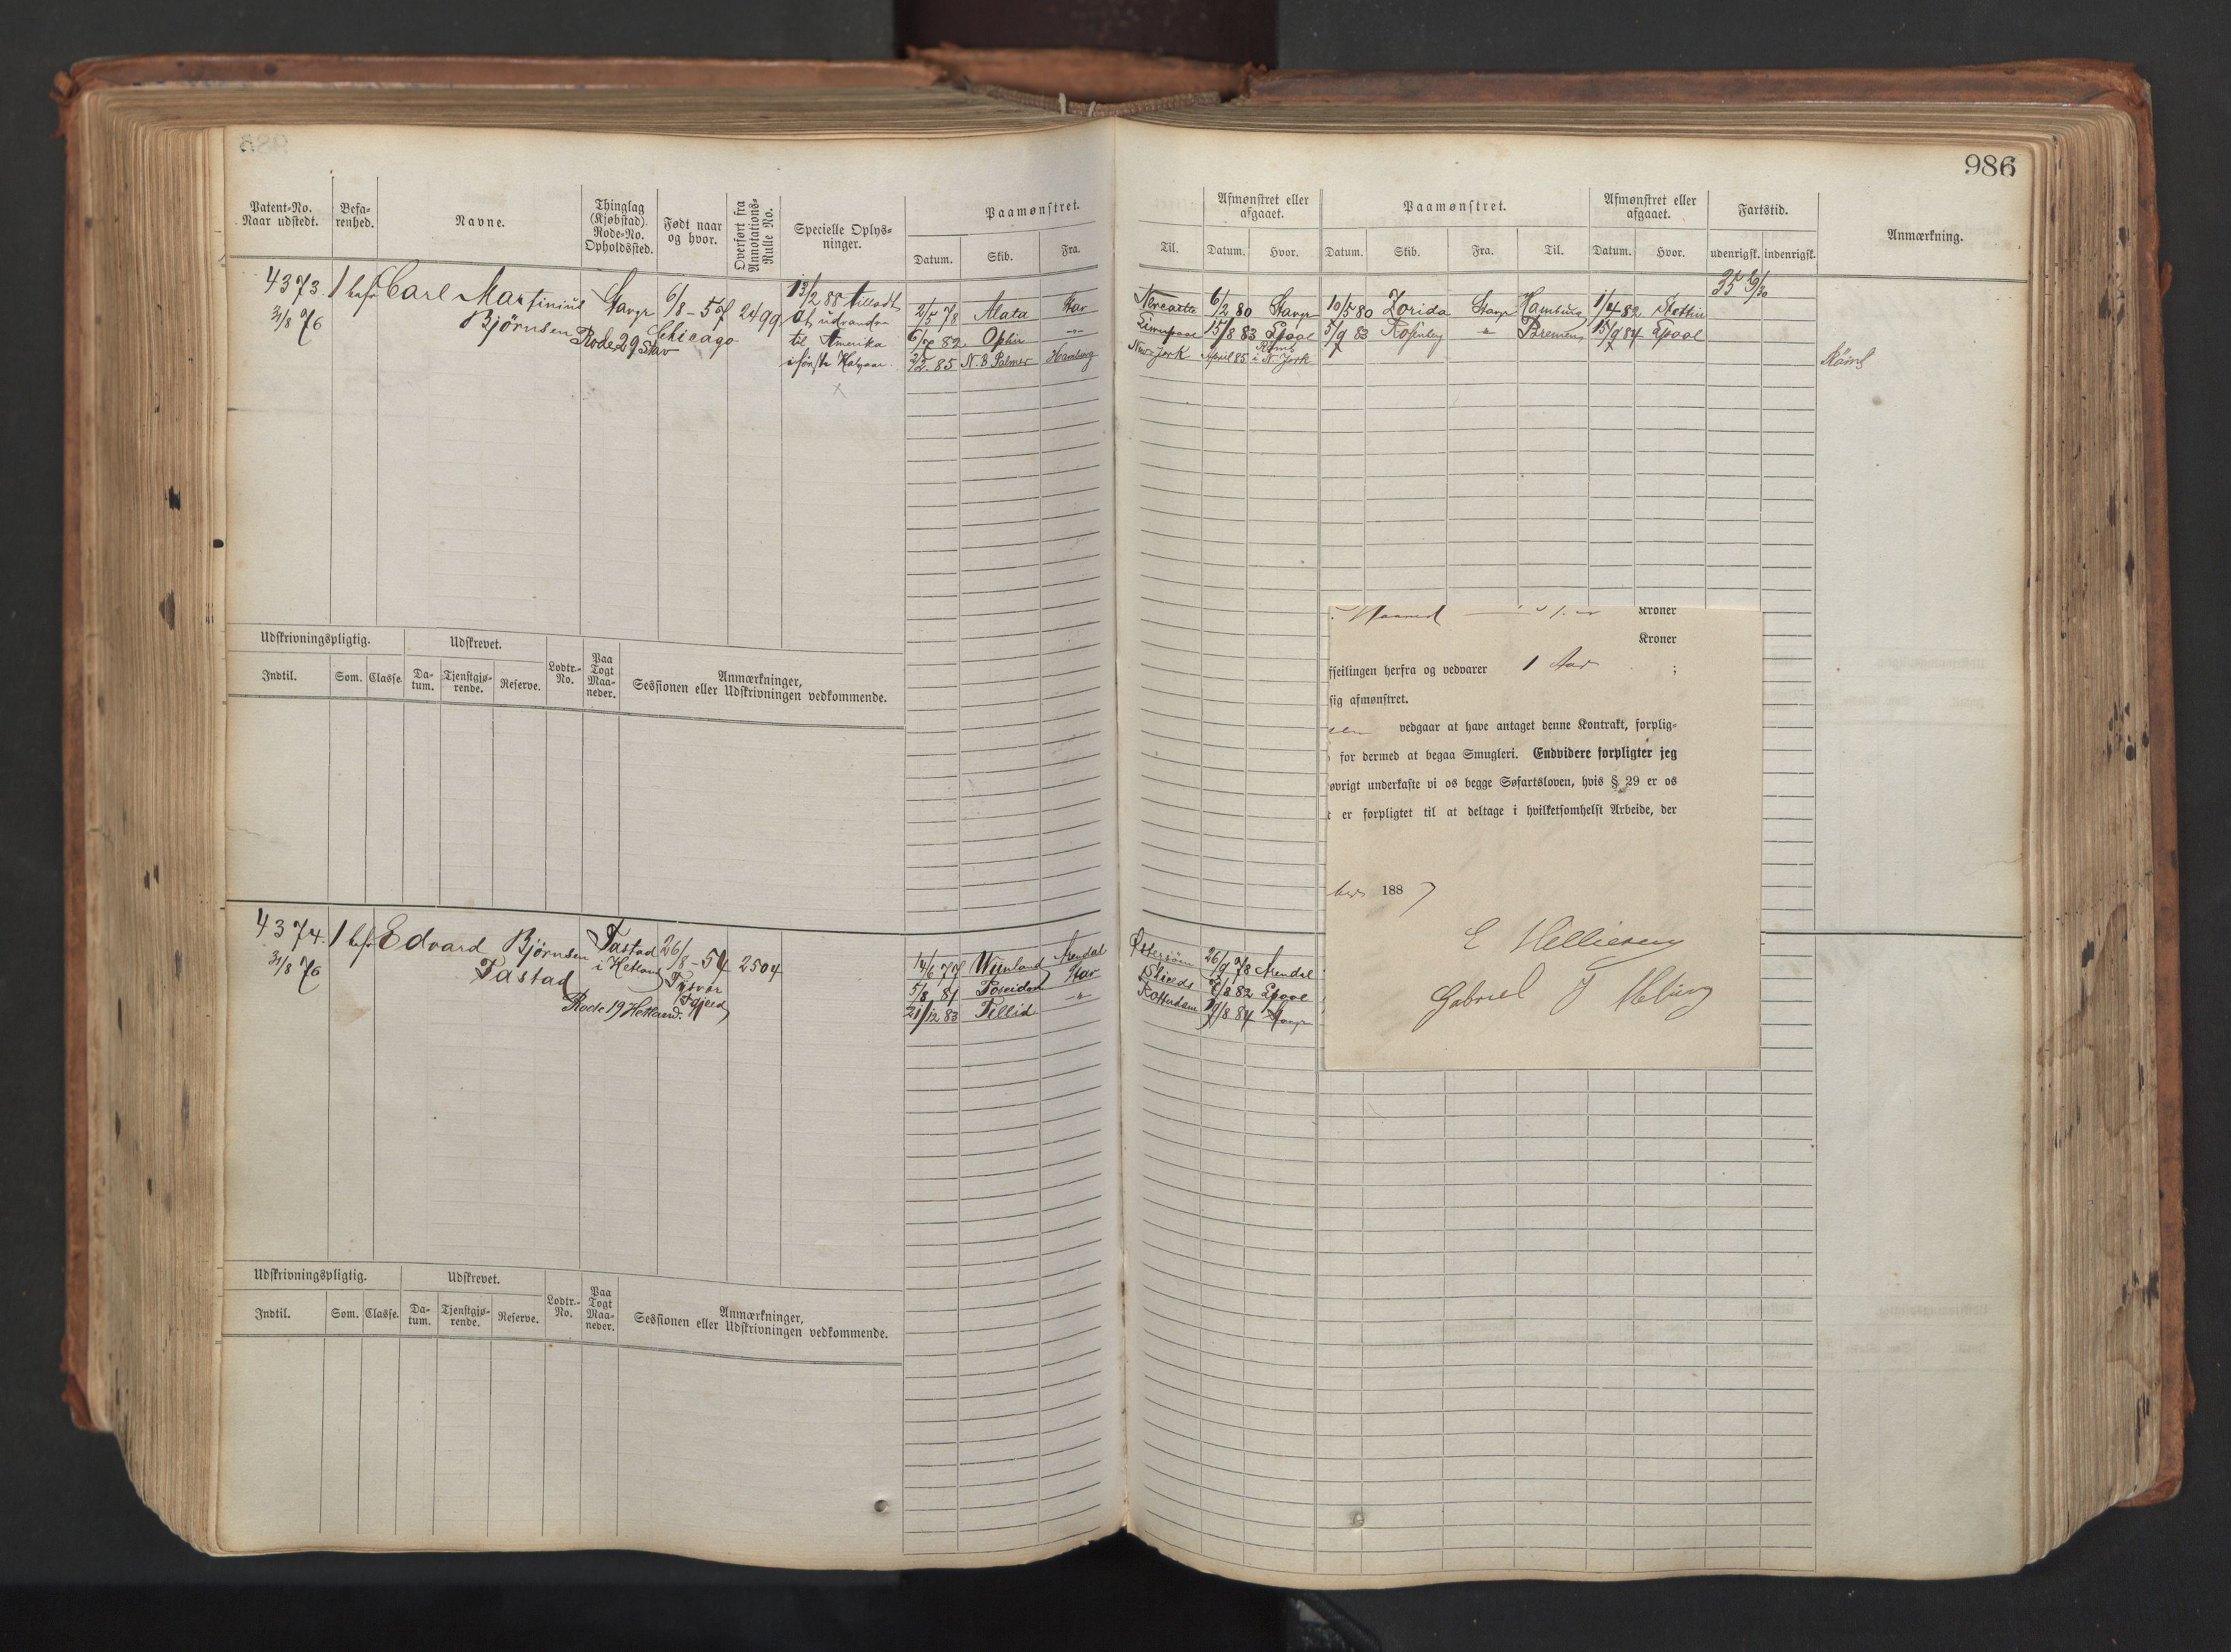 986
Patent-No. Naar udstedt.
Befarenhed.
Navne.
Thinglag (Kjøbstad). Rode-No. Opholdssted.
Født naar og hvor.
Overført fra Annotations-Rulle No.
Specielle Oplysninger.
Paamønstret.
Datum. Skib. Fra. Til.
Afmønstret eller afgaaet.
Datum. Hvor.
Paamønstret.
Datum. Skib. Fra. Til.
Afmønstret eller afgaaet.
Datum. Hvor.
Fartstid.
udenrigsk. indenrigsk.
Anmærkning.
4373. 1 Carl Martinius Stavgr 6/8-57 2499 13/2 88 tilladt
31/8 76 Bjørnsen Chicago at udvandre
Rode 29 Stav til Amerika
i første Halvaar
2/5 78 Mata Stav 6/2 80 Stavgr 10/5 80 Zorida Stavgr Hamburg 1/4 82 Stettin
82 Ophir -"- 15/8 83 Lpool 5/9 83 " Bremen 15/9 84 Lpool
85 N. B. Palmer Hamburg New-York April 85 Rømt i N. York Rømt
Udskrivningspligtig.
Udskrevet.
Indtil. Som. Classe. Datum. Tjenstgjørende. Reserve. Lodtr.-No. Paa Togt Maaneder.
Anmærkninger,
Sessionen eller Udskrivningen vedkommende.
Kroner
Kroner
fseilingen herfra og vedvarer 1 Aar ;
sig afmønstret.
vedgaar at have antaget denne Kontrakt, forplig-
for dermed at begaa Smugleri. Endvidere forpligter jeg
øvrigt underkaste vi os begge Søfartsloven, hvis § 29 er os
t er forpligtet til at deltage i hvilketsomhelst Arbeide, der
188 7
E Helliesen
Gabriel
4374. 1 Edvard Bjørnsen Tastad 26/8-54 2504
31/8 76 Tastad i Hetland Tysvær
Rode 19 Hetland.
14/6 77 Arendal Østersøen 26/9 78 Arendal
5/8 81 Poseidon Stav Shields 82 Lpool
21/12 83 -"- Rotterdam 84 Stavgr
Udskrivningspligtig.
Udskrevet.
Indtil. Som. Classe. Datum. Tjenstgjørende. Reserve. Lodtr.-No. Paa Togt Maaneder.
Anmærkninger,
Sessionen eller Udskrivningen vedkommende.